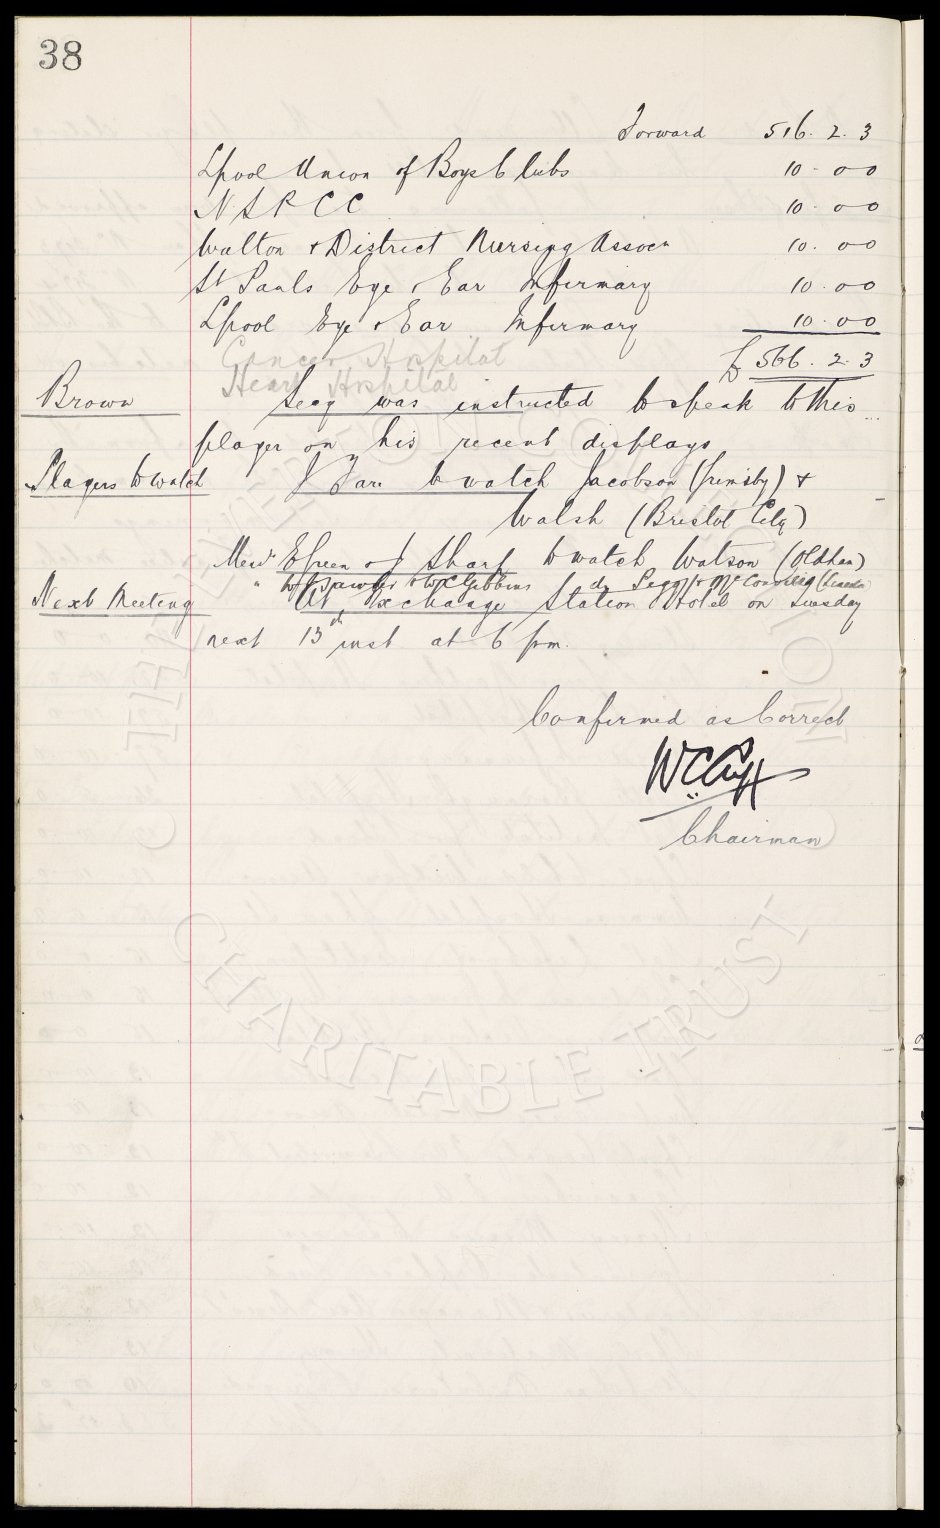 38
Forward 516. 2. 3
Lpool Union of Boys Clubs 10. 0 0
N. S. P. C C 10. 0 0
Walton & District Nursing Assocn 10. 0 0
St Pauls Eye & Ear Infirmary 10. 0 0
Lpool Eye & Ear Infirmary 10. 0 0
Cancer Hospital
£ 566. 2. 3
Heart Hospital
Brown Secy was instructed to speak to this
player on his recent displays
Players to watch J Fare to watch Jacobson (Grimsby) &
Walsh (Bristol City)
Messrs E Green & J Sharp to watch Watson (Oldham)
" & W C Gibbins do Legg & McConnell
Next Meeting At Exchange Station Hotel on Tuesday
next 13th inst at 6 pm.
Confirmed as Correct
WCCuff
Chairman
THE EVERTON COLLECTION
CHARITABLE TRUST